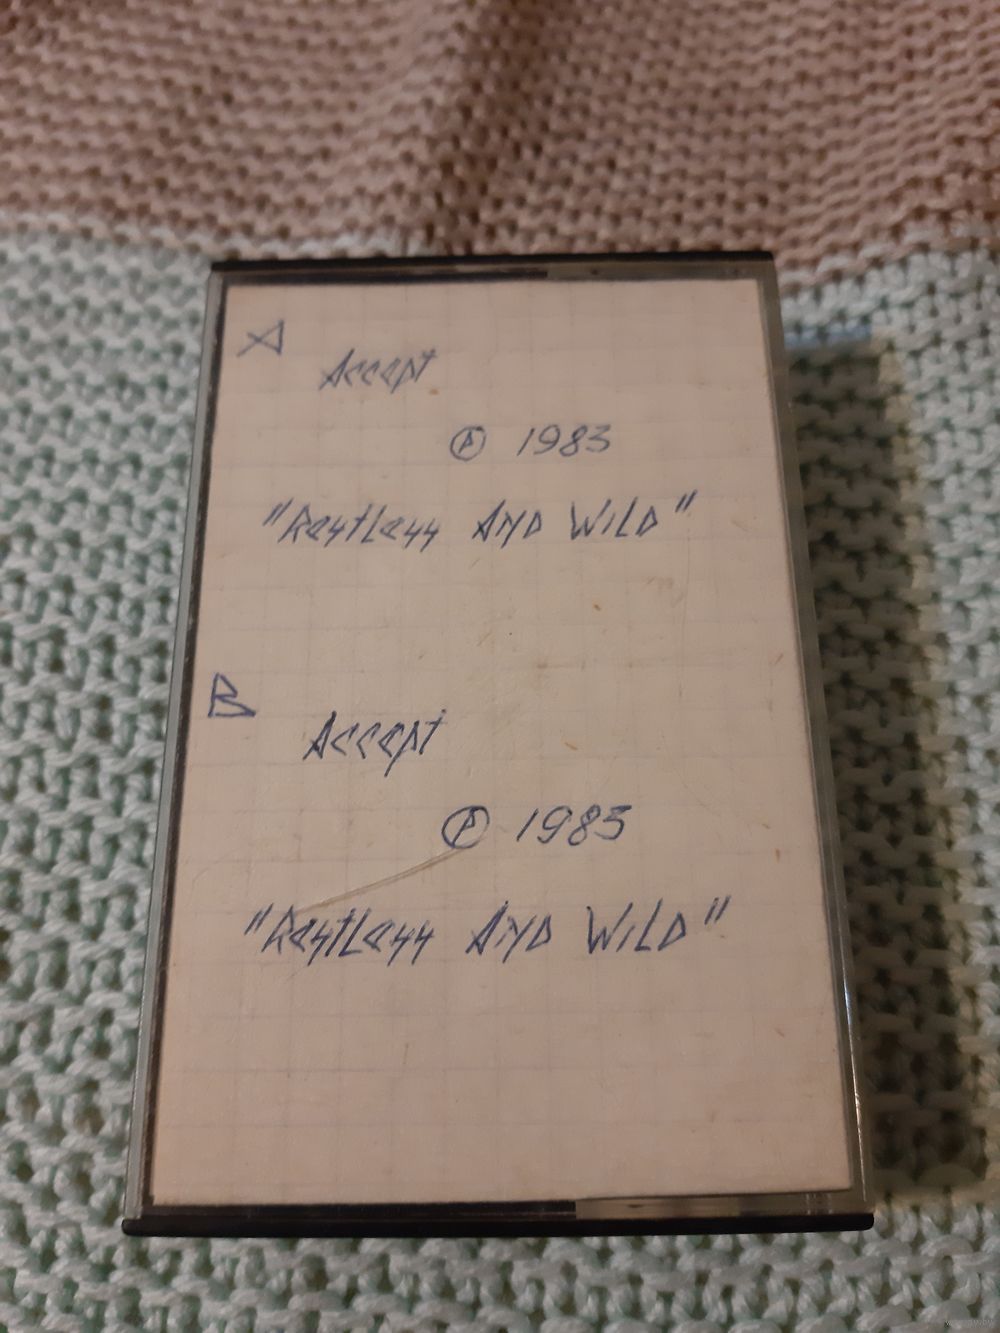 A
Accept
Ⓟ 1983
"Restless And Wild"
B
Accept
Ⓟ 1983
"Restless And Wild"